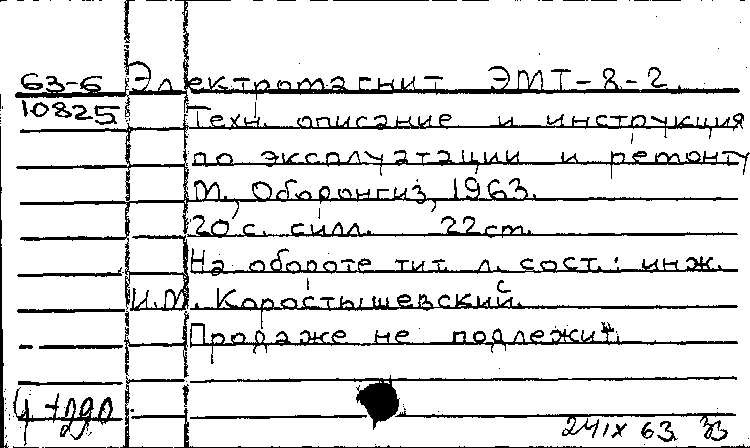 63-6 Электромагнит ЭМТ-8-2.
10825 Техн. описание и инструкция
по эксплуатации и ремонту
М., Оборонгиз, 1963.
20 с. с илл. 22 см.
На обороте тит. л. сост.: инж.
И.М. Коростышевский.
Продаже не подлежит.
241X 63